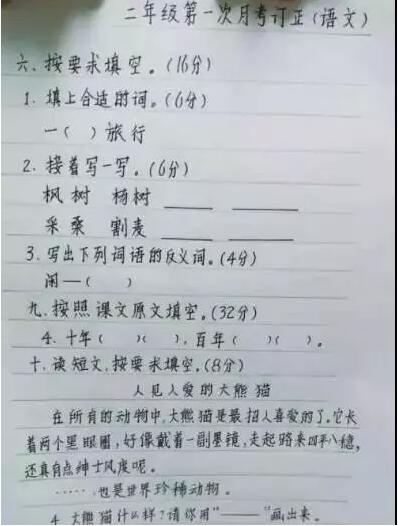 二年级第一次月考订正(语文)
六、按要求填空。(16分)
1. 填上合适的词。(6分)
一( )旅行
2. 接着写一写。(6分)
枫树 杨树 ____ ____
采桑 割麦 ____ ____
3. 写出下列词语的反义词。(4分)
闲—( )
九、按照课文原文填空。(32分)
4. 十年( )( ),百年( )( )。
十、读短文,按要求填空。(8分)
人见人爱的大熊猫
在所有的动物中,大熊猫是最招人喜爱的了。它长
着两个黑眼圈,好像戴着一副墨镜,走起路来四平八稳,
还真有点绅士风度呢。
……也是世界珍稀动物。
4. 大熊猫什么样?请你用"——"画出来。